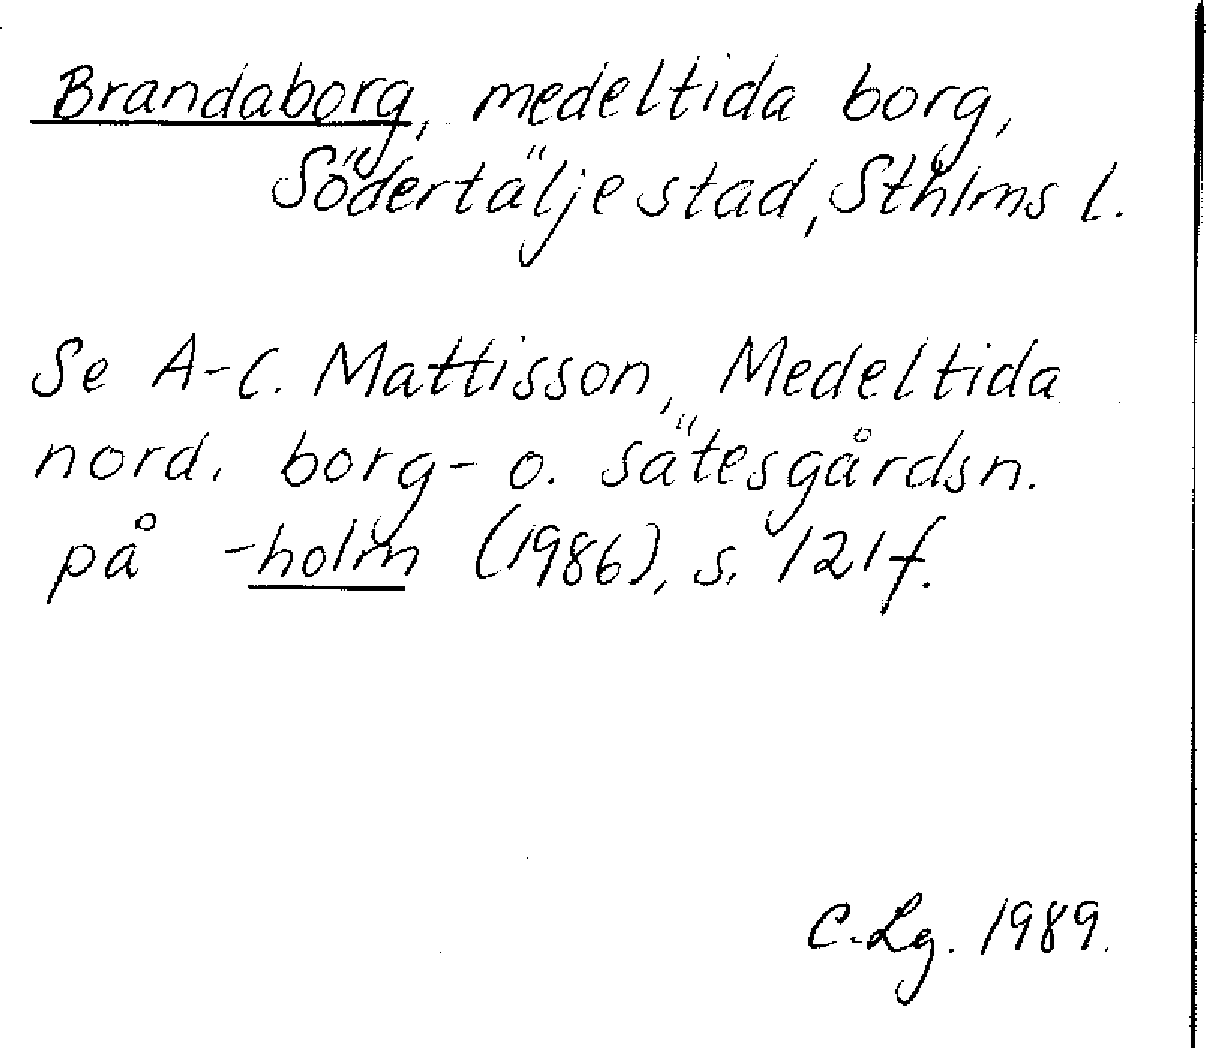 Brandaborg, medeltida borg,
Södertälje stad, Sthlms l.
Se A-C. Mattisson, Medeltida
nord. borg- o. sätesgårdsn.
på -holm (1986), s. 121f.
C. Lg. 1989.